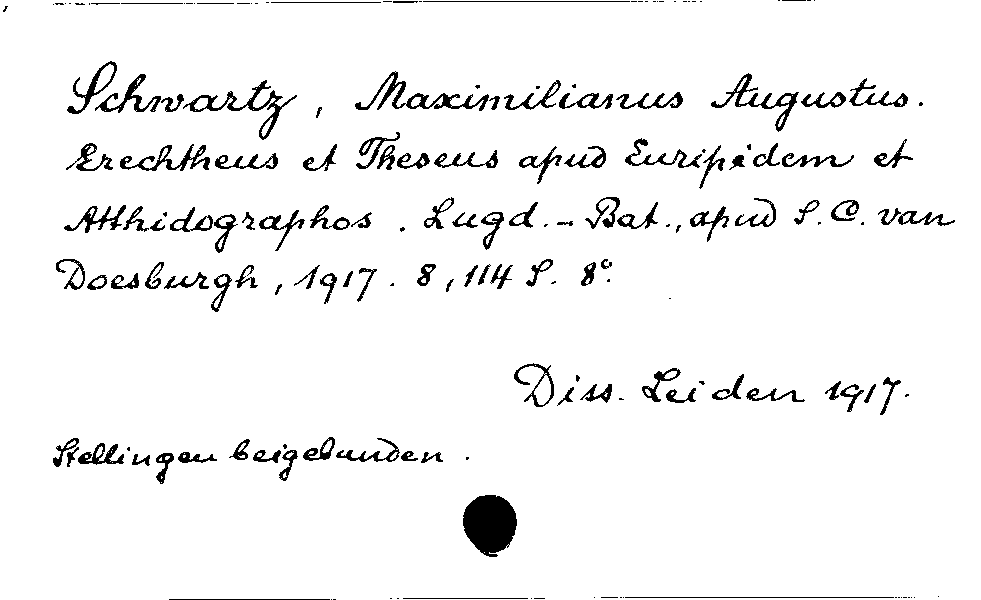 Schwartz, Maximilianus Augustus.
Erechtheus et Theseus apud Euripidem et
Atthidographos. Lugd.-Bat., apud S. C. van
Doesburgh, 1917. 8, 114 S. 8°.
Diss. Leiden 1917.
Stellingen beigebunden.